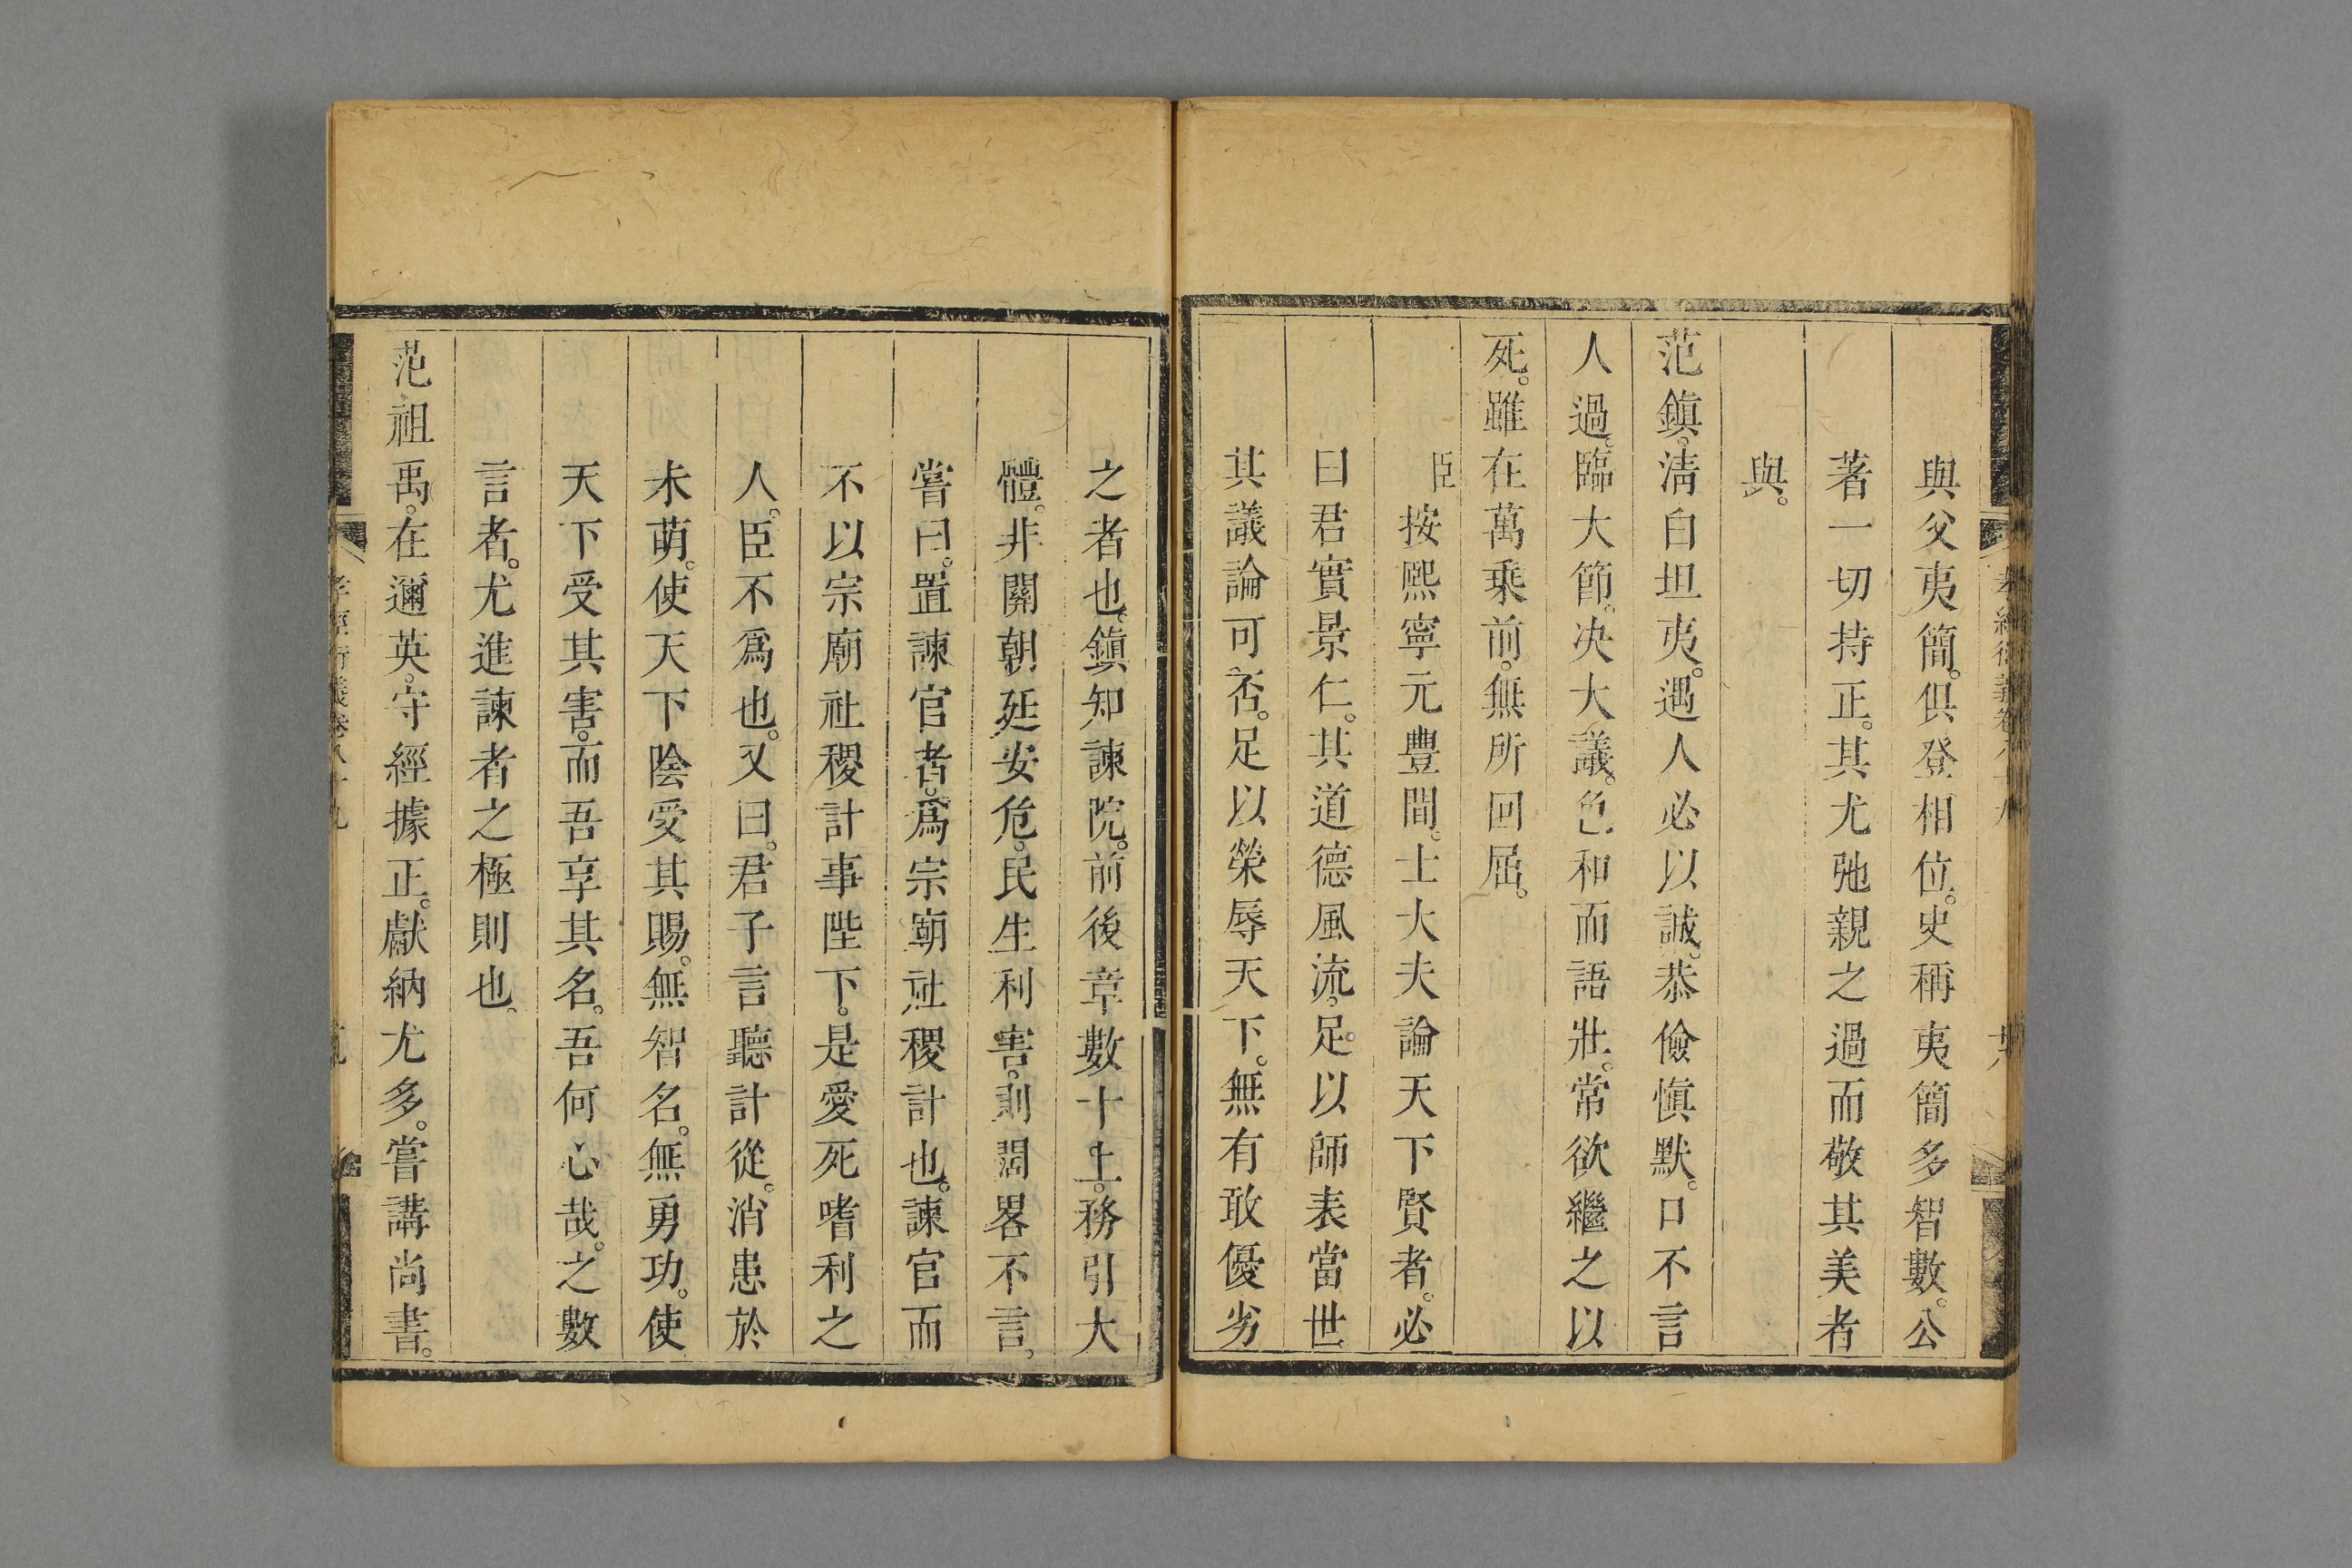 與父夷簡。俱登相位。史稱夷簡多智數。公
著一切持正。其尤弛親之過而敬其美者
與。
范鎮。淸白坦夷。遇人必以誠。恭儉愼默。口不言
人過。臨大節。决大議。色和而語壯。常欲繼之以
死。雖在萬乗前。無所回屈。
臣按熙寧元豐間。士大夫論天下賢者。必
曰君實景仁。其道德風流。足以師表當世
其議論可否。足以榮辱天下。無有敢優劣
之者也。鎭知諫院。前後章數十上。務引大
體。非關朝廷安危。民生利害。則闊畧不言。
嘗曰。置諫官者。爲宗廟社稷計也。諫官而
不以宗廟社稷計事陛下。是愛死嗜利之
人。臣不爲也。又曰。君子言聽計從。消患於
未萌。使天下陰受其賜。無智名。無勇功。使
天下受其害。而吾享其名。吾何心哉。之數
言者。尤進諫者之極則也。
范祖禹。在邇英。守經據正。獻納尤多。嘗講尚書。